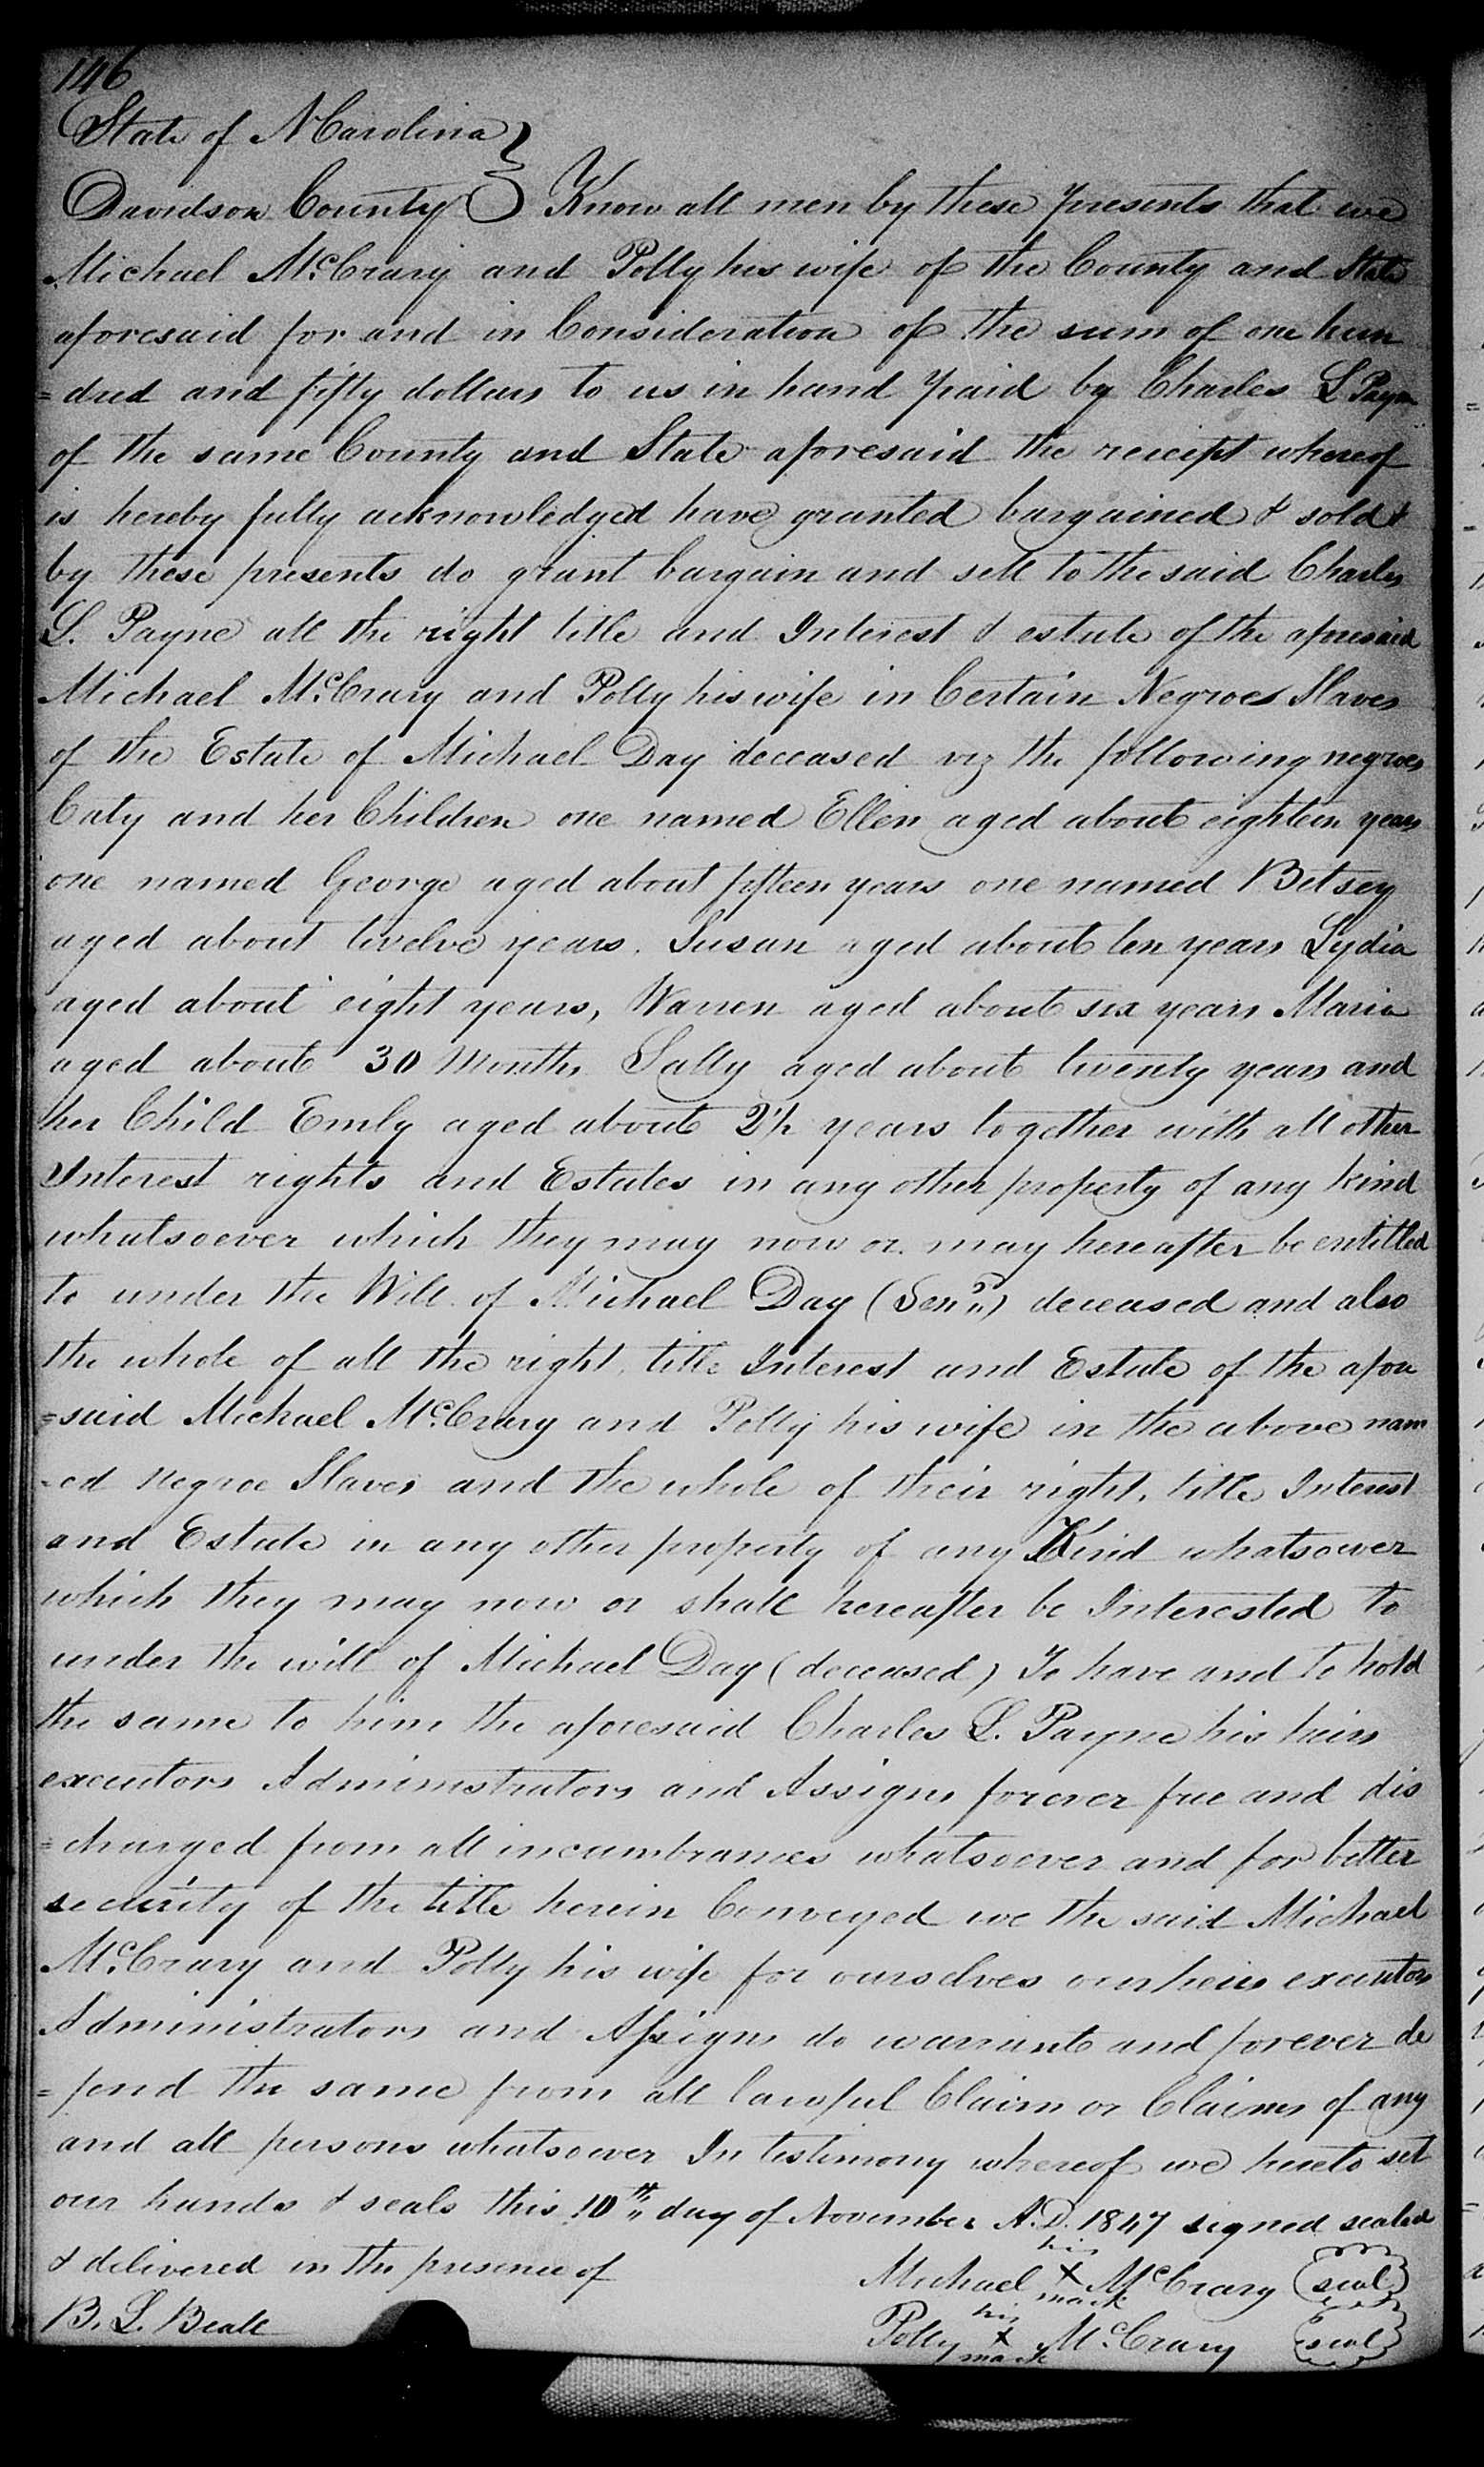 146
State of N Carolina
Davidson County Know all men by these presents that we
Michael McCrary and Polly his wife of the County and State
aforesaid for and in Consideration of the sum of one hun
=dred and fifty dollars to us in hand paid by Charles L Payne
of the same County and State aforesaid the receipt whereof
is hereby fully acknowledged have granted bargained & sold &
by these presents do grant bargain and sell to the said Charles
L. Payne all the right title and Interest & estate of the aforesaid
Michael McCrary and Polly his wife in Certain Negroes Slaves
of the Estate of Michael Day deceased viz the following negroes
Caty and her Children one named Ellen aged about eighteen years
one named George aged about fifteen years one named Betsey
aged about twelve years. Susan aged about ten years Lydia
aged about eight years, Warren aged about six years Maria
aged about 30 Months Sally aged about twenty years and
her Child Emily aged about 2 1/2 years together with all other
Interest rights and Estates in any other property of any kind
whatsoever which they may now or may hereafter be entitled
to under the Will of Michael Day (Senr) deceased and also
the whole of all the right, title Interest and Estate of the afore
=said Michael McCrary and Polly his wife in the above nam
=ed negroe Slaves and the whole of their right, title Interest
and Estate in any other property of any Kind whatsoever
which they may now or shall hereafter be Interested to
under the will of Michael Day (deceased) To have and to hold
the same to him the aforesaid Charles L. Payne his heirs
executors Administrators and Assigns forever free and dis
=charged from all incumbrances whatsoever and for better
security of the title herein Conveyed we the said Michael
McCrary and Polly his wife for ourselves our heirs executors
Administrators and Assigns do warrant and forever de
=fend the same from all lawful Claim or Claims of any
and all persons whatsoever In testimony whereof we hereto set
our hands & seals this 10th day of November A.D. 1847 signed sealed
& delivered in the presence of
his
Michael X McCrary (seal)
mark
B. L. Beall
his
Polly X McCrary (seal)
mark